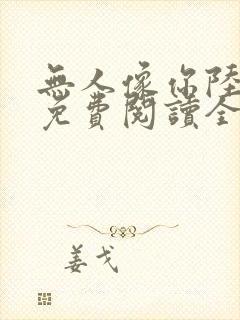 無人像你陸
免費閱讀全
姜戈